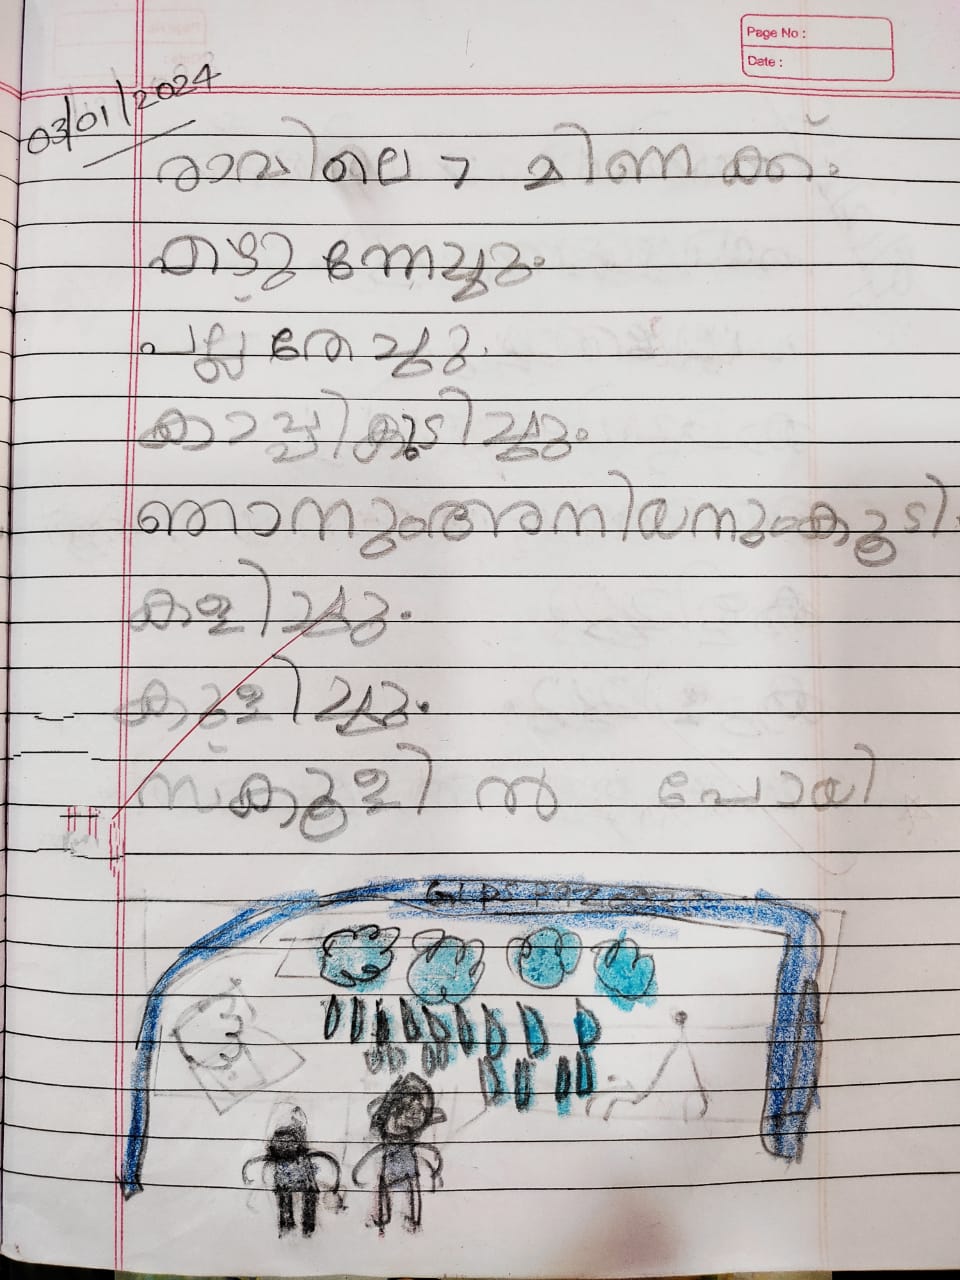 Page No :
Date :
03/01/2024
രാവിലെ 7 മിണക്ക്.
പല്ല് തേച്ചു.
കാപ്പി കുടിച്ചു.
ഞാനുംഅനിയനുംകൂടി
കളിച്ചു.
കുളിച്ചു.
സ്കൂളിൽ പോയി